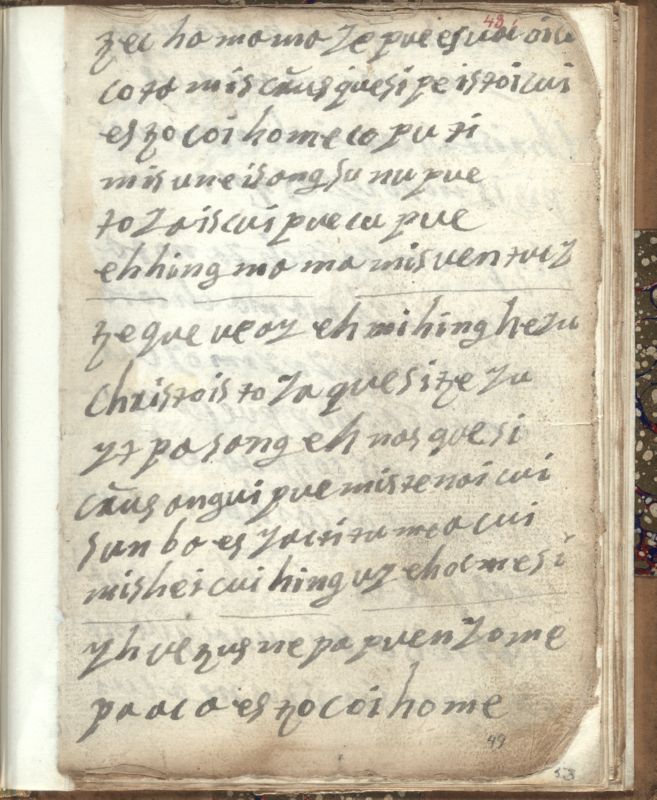 48
ꜩec ha ma ma ze pue es uai oi
cota mis cãus quesi pe istoi cui
es ꜩo coi home ca pu ti
mis une is ong su nu pue
to za is cui pue cu pue
eh hing ma ma mis uen tuiz
ꜩe que ue az eh mi hing he zu
christois to za quesi ꜩe zu
yt pa song eh nas que si
cãus ongui pue mis te nai cui
sun ba es za cti tu me a cui
mis hei cui hing uz eh ac me si
yh ue ꜩus ne pa puen zo me
pa ac a es ꜩo coi home
49
53